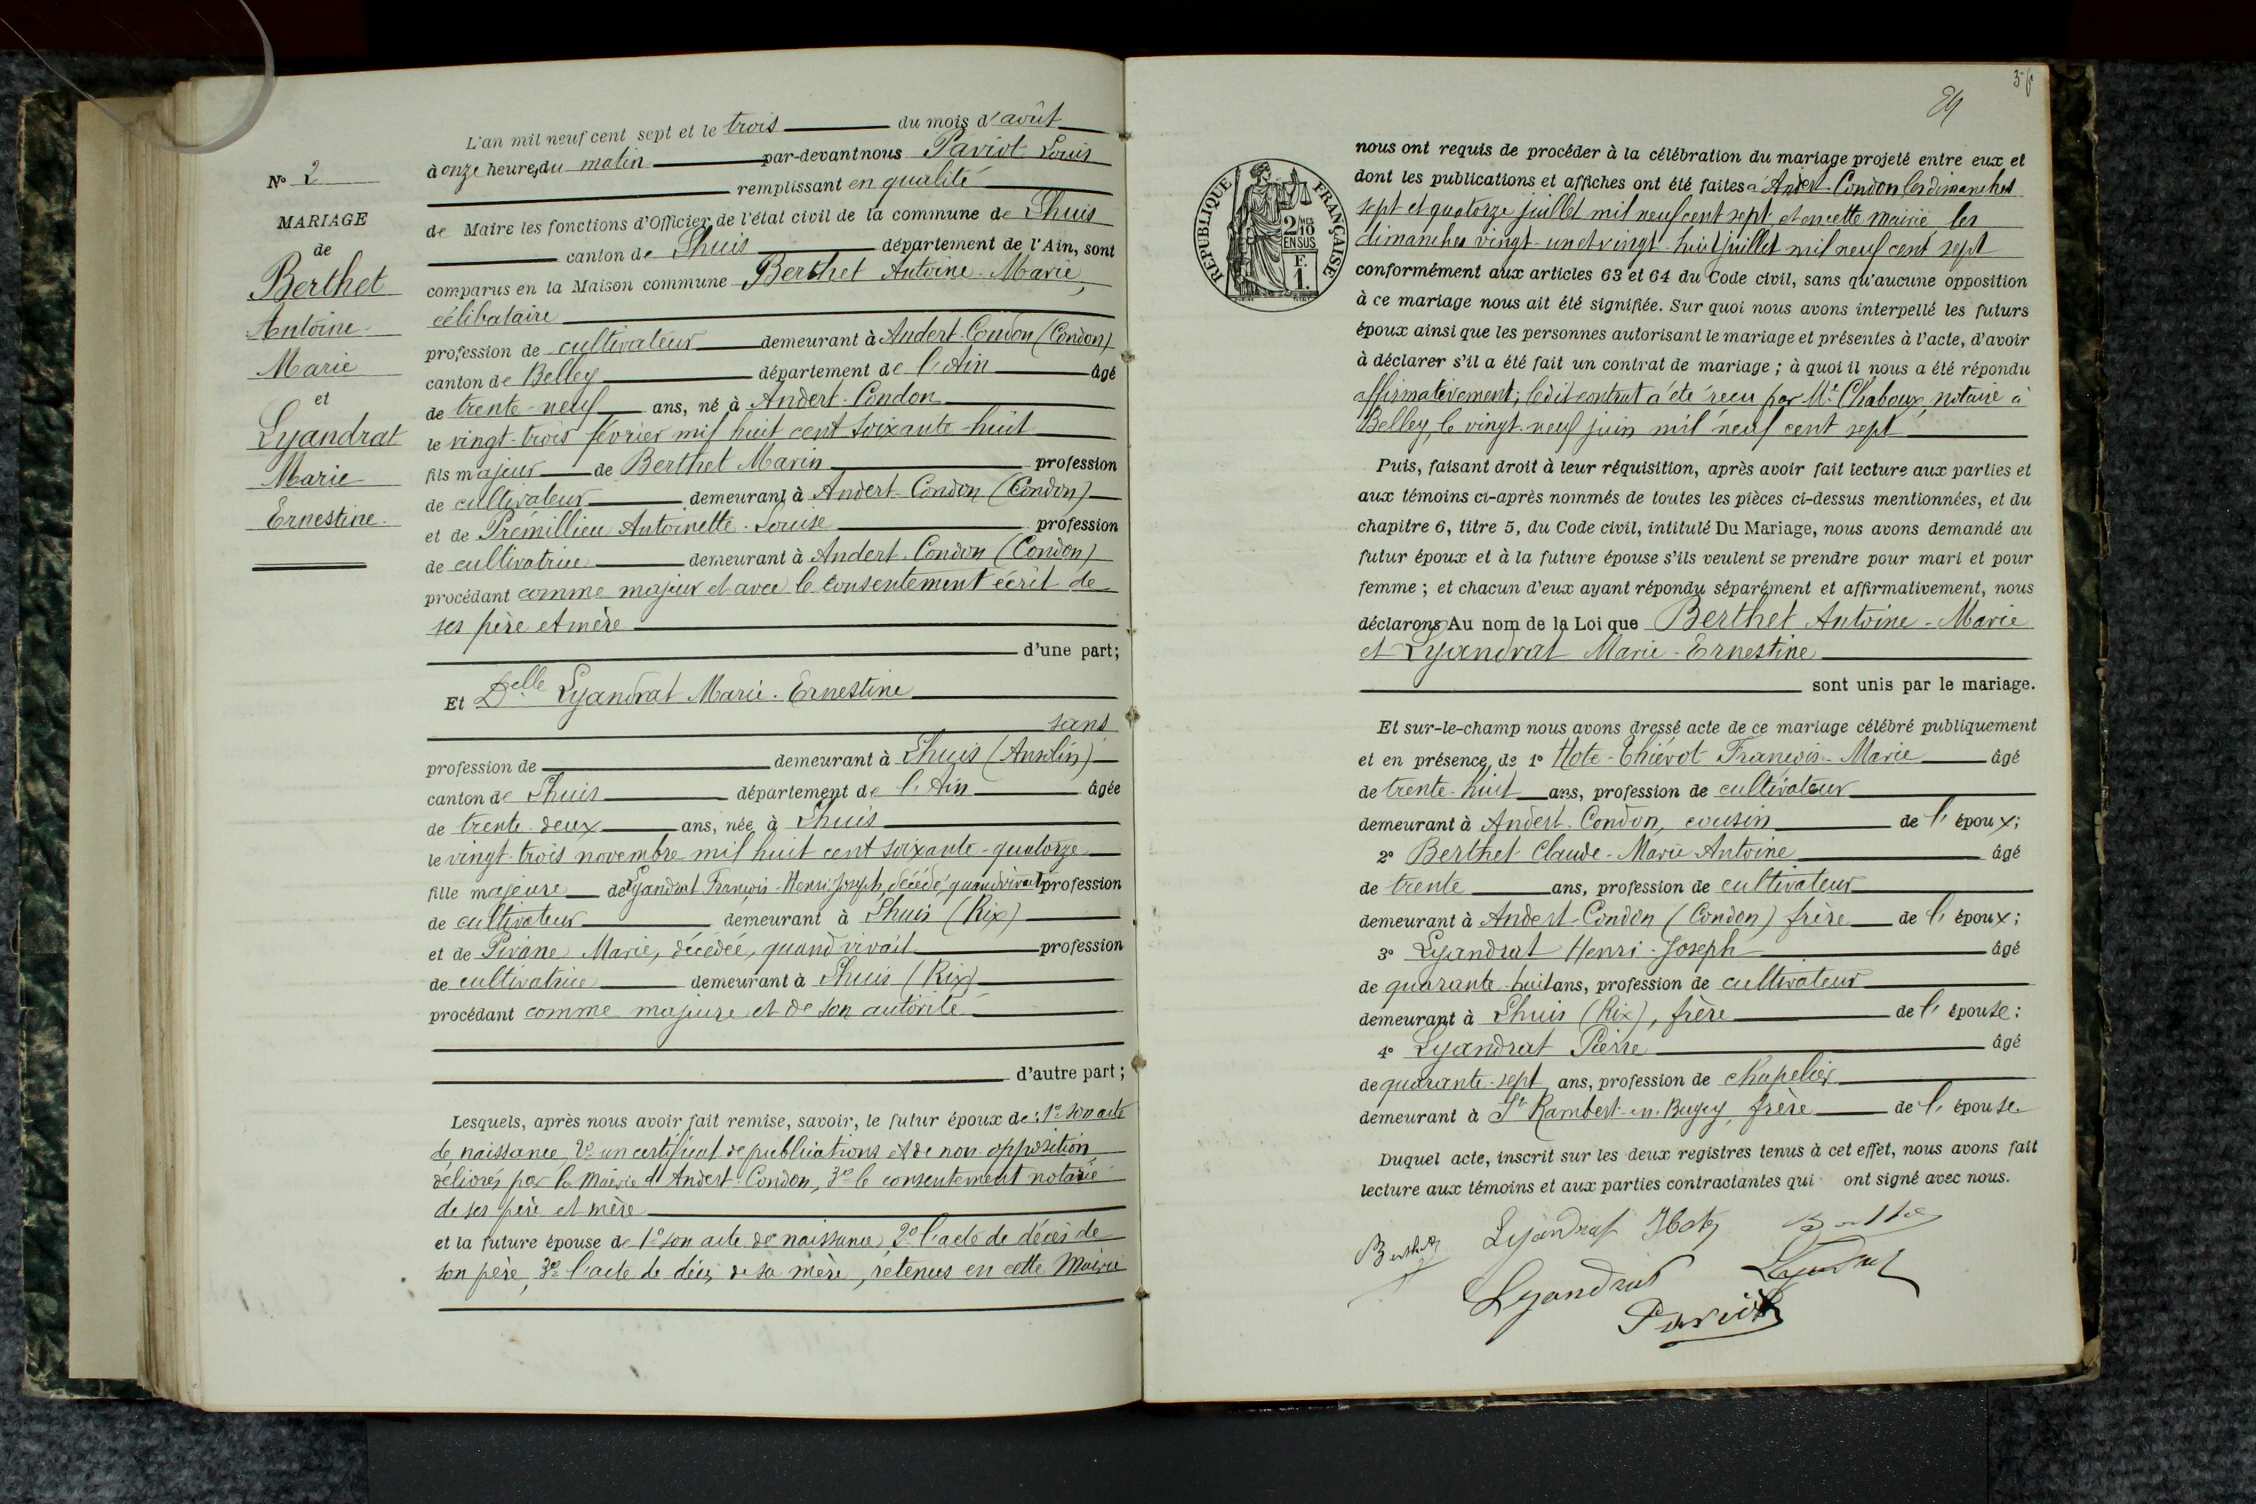 L'an mil neuf cent sept et le trois du mois d'août
à onze heures du matin par-devant nous Paviot Louis
remplissant en qualité
de Maire les fonctions d'Officier de l'état civil de la commune de Lhuis
canton de Lhuis département de l'Ain, sont
comparus en la Maison commune Berthet Antoine-Marie,
célibataire
profession de cultivateur demeurant à Andert-Condon (Condon)
canton de Belley département de l'Ain âgé
de trente-neuf ans, né à Andert-Condon
le vingt-trois février mil huit cent soixante-huit
fils majeur de Berthet Marin profession
de cultivateur demeurant à Andert-Condon (Condon)
et de Prémillieu Antoinette-Louise profession
de cultivatrice demeurant à Andert-Condon (Condon)
procédant comme majeur et avec le consentement écrit de
ses père et mère
d'une part;
Et Delle Lyandrat Marie-Ernestine
sans
profession de demeurant à Lhuis (Anselin)
canton de Lhuis département de l'Ain âgée
de trente-deux ans, née à Lhuis
le vingt-trois novembre mil huit cent soixante-quatorze
fille majeure de Lyandrat François-Henri-Joseph, décédé, quand vivait profession
de cultivateur demeurant à Lhuis (Rix)
et de Pivane Marie, décédée, quand vivait profession
de cultivatrice demeurant à Lhuis (Rix)
procédant comme majeure et de son autorité
d'autre part;
Lesquels, après nous avoir fait remise, savoir, le futur époux de: 1º son acte
de naissance 2º un certificat de publications et de non opposition
délivrés par la Mairie d'Andert-Condon, 3º le consentement notarié
de ses père et mère
et la future épouse de 1º son acte de naissance, 2º l'acte de décès de
son père, 3º l'acte de décès de sa mère, retenus en cette Mairie
Nº 2
MARIAGE
de
Berthet
Antoine
Marie
et
Lyandrat
Marie
Ernestine
RÉPUBLIQUE FRANÇAISE
2/10
EN SUS
F.
1.
nous ont requis de procéder à la célébration du mariage projeté entre eux et
dont les publications et affiches ont été faites à Andert-Condon les dimanches
sept et quatorze juillet mil neuf cent sept et en cette mairie les
dimanches vingt-un et vingt-huit juillet mil neuf cent sept
conformément aux articles 63 et 64 du Code civil, sans qu'aucune opposition
à ce mariage nous ait été signifiée. Sur quoi nous avons interpellé les futurs
époux ainsi que les personnes autorisant le mariage et présentes à l'acte, d'avoir
à déclarer s'il a été fait un contrat de mariage ; à quoi il nous a été répondu
affirmativement; ledit contrat a été reçu par Me Chaboux, notaire à
Belley, le vingt-neuf juin mil neuf cent sept
Puis, faisant droit à leur réquisition, après avoir fait lecture aux parties et
aux témoins ci-après nommés de toutes les pièces ci-dessus mentionnées, et du
chapitre 6, titre 5, du Code civil, intitulé Du Mariage, nous avons demandé au
futur époux et à la future épouse s'ils veulent se prendre pour mari et pour
femme ; et chacun d'eux ayant répondu séparément et affirmativement, nous
déclarons Au nom de la Loi que Berthet Antoine-Marie
et Lyandrat Marie-Ernestine
sont unis par le mariage.
Et sur-le-champ nous avons dressé acte de ce mariage célébré publiquement
et en présence de 1º Hote-Thiévot François-Marie âgé
de trente-huit ans, profession de cultivateur
demeurant à Andert-Condon, cousin de l'époux;
2º Berthet Claude-Marie Antoine âgé
de trente ans, profession de cultivateur
demeurant à Andert-Condon (Condon) frère de l'époux;
3º Lyandrat Henri-Joseph âgé
de quarante-huit ans, profession de cultivateur
demeurant à Lhuis (Rix), frère de l'épouse;
4º Lyandrat Pierre âgé
de quarante-sept ans, profession de chapelier
demeurant à St Rambert-en-Bugey, frère de l'épouse.
Duquel acte, inscrit sur les deux registres tenus à cet effet, nous avons fait
lecture aux témoins et aux parties contractantes qui ont signé avec nous.
Berthet Lyandrat Hote
Lyandrat Lyandrat
Paviot